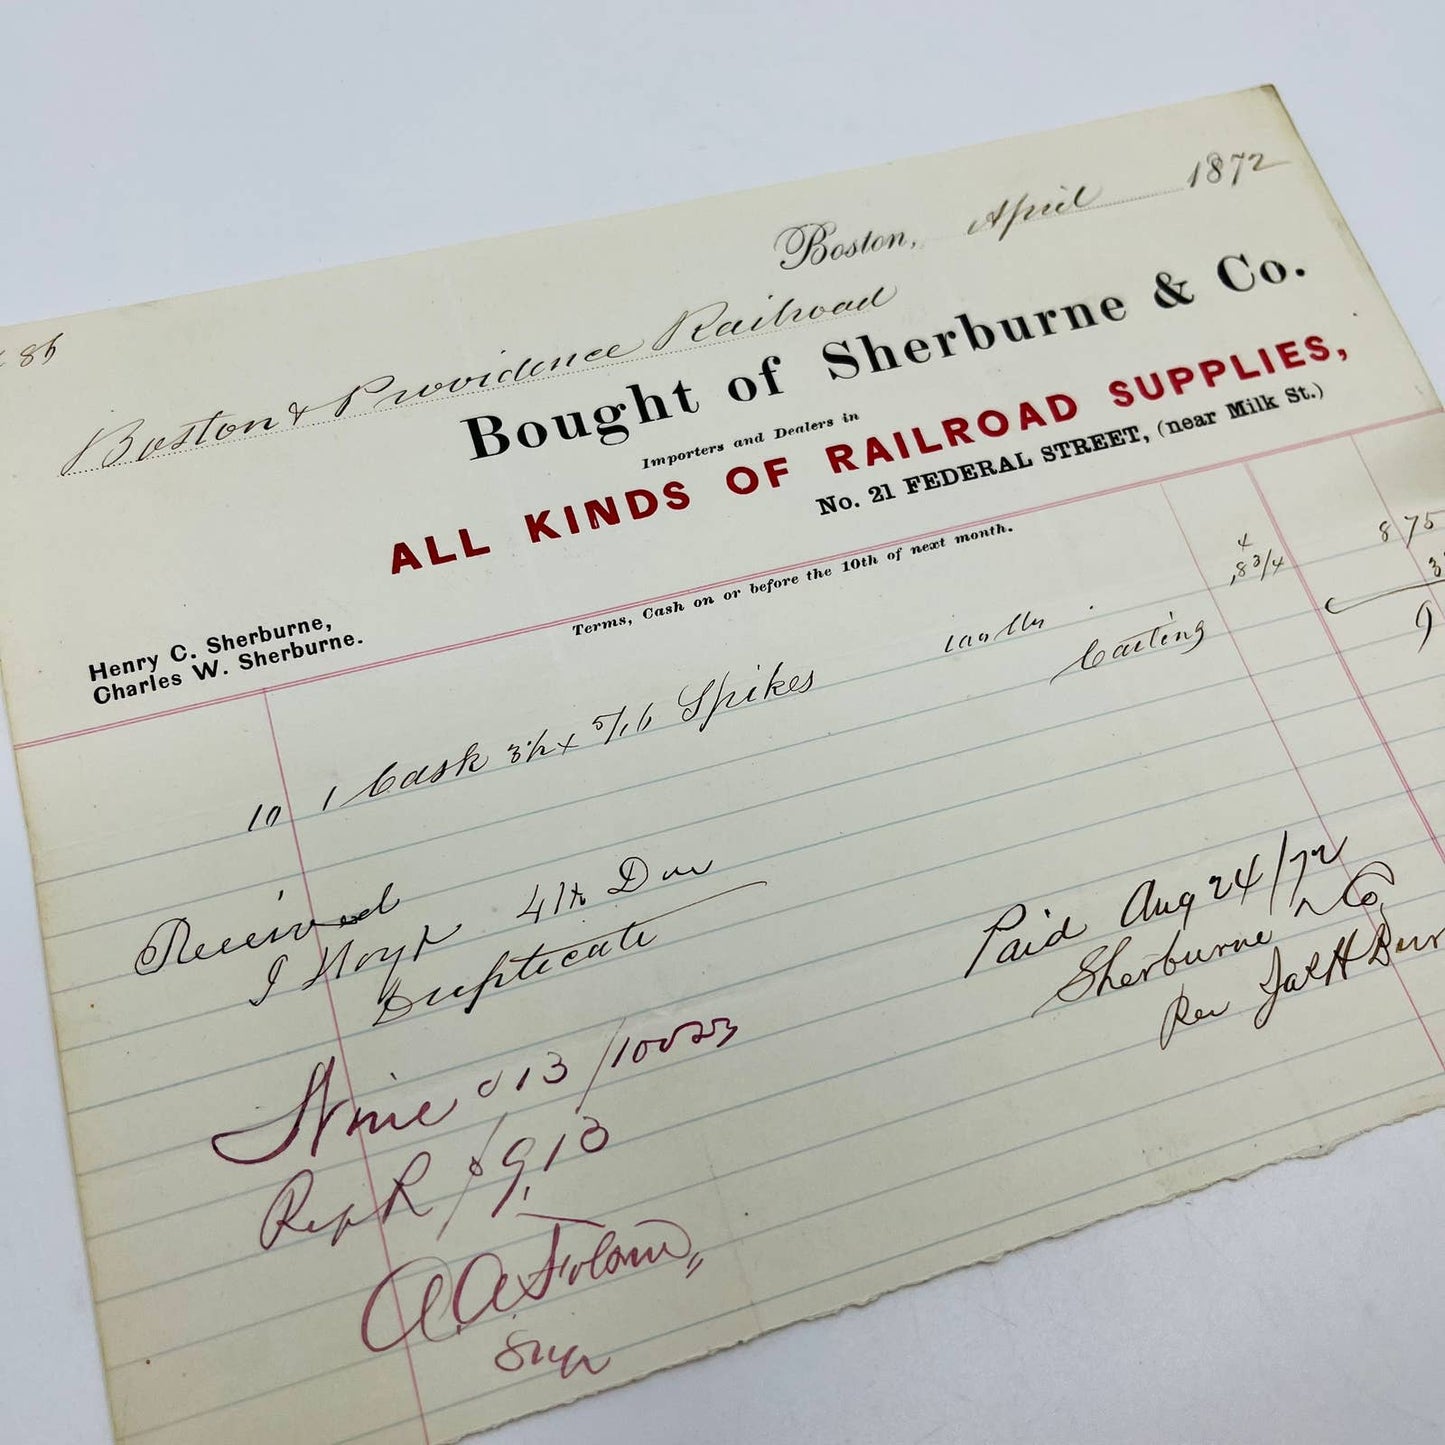 86
Boston, April 1872
Boston & Providence Railroad
Bought of Sherburne & Co.
Importers and Dealers in
ALL KINDS OF RAILROAD SUPPLIES,
No. 21 FEDERAL STREET, (near Milk St.)
Henry C. Sherburne,
Charles W. Sherburne.
Terms, Cash on or before the 10th of next month.
10 1 Cask 3½ x 5/16 Spikes 100 lbs 8 3/4 8 75
Carting
Received
J Hoyt 4th Div
Duplicate
Paid Aug 24/72
Sherburne & Co
Per
913
Rep R 9,13
A. A. Folsom
Sup